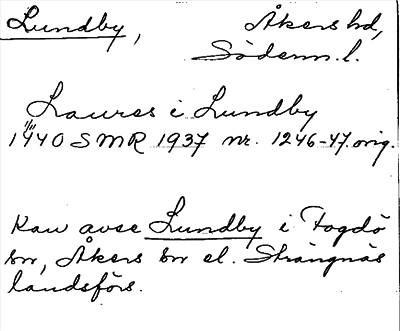 Lundby, Åkers hd,
Söderm. l.
Laures i Lundby
1/11 1440 SMR 1937 nr. 1246-47. orig.
Kan avse Lundby i Fogdö
sn, Åkers sn el. Strängnäs
landsförs.